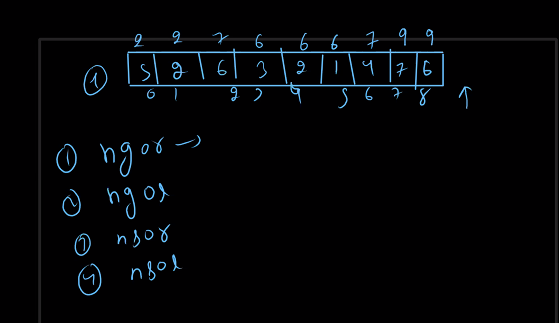 2 2 7 6 6 6 7 9 9
① 5 2 6 3 2 1 4 7 6
0 1 2 3 4 5 6 7 8 ↑
① ngor →
② ngol
③ nsor
④ nsol